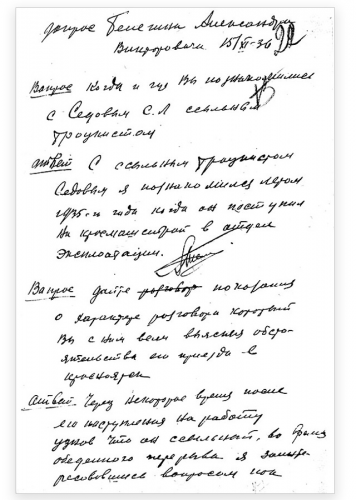 допрос Телегина Александра
Викторовича 15/XI-36
Вопрос Когда и где Вы познакомились
с Седовым С.Л ссыльным
троцкистом
Ответ С ссыльным троцкистом
Седовым я познакомился летом
1935-и года когда он поступил
на красмашстрой в отдел
Эксплоатации.
Вопрос Дайте разговор показания
о характере разговора который
Вы с ним вели выясняя обсто-
ятельства его приезда в
Красноярск
Ответ Через некоторое время после
его поступления на работу
узнов что он ссыльный, во время
обеденного перерыва я заинте-
ресовавшись вопросом